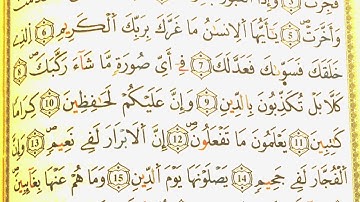 فُجِّرَتْ ﴿3﴾ وَإِذَا الْقُبُورُ
وَأَخَّرَتْ ﴿5﴾ يَٰٓأَيُّهَا الْإِنسَٰنُ مَا غَرَّكَ بِرَبِّكَ الْكَرِيمِ ﴿6﴾ الَّذِى
خَلَقَكَ فَسَوَّىٰكَ فَعَدَلَكَ ﴿7﴾ فِىٓ أَىِّ صُورَةٍ مَّا شَآءَ رَكَّبَكَ ﴿8﴾
كَلَّا بَلْ تُكَذِّبُونَ بِالدِّينِ ﴿9﴾ وَإِنَّ عَلَيْكُمْ لَحَٰفِظِينَ ﴿10﴾ كِرَامًا
كَٰتِبِينَ ﴿11﴾ يَعْلَمُونَ مَا تَفْعَلُونَ ﴿12﴾ إِنَّ الْأَبْرَارَ لَفِى نَعِيمٍ ﴿13﴾ وَإِنَّ
الْفُجَّارَ لَفِى جَحِيمٍ ﴿14﴾ يَصْلَوْنَهَا يَوْمَ الدِّينِ ﴿15﴾ وَمَا هُمْ عَنْهَا بِغَآئِبِينَ